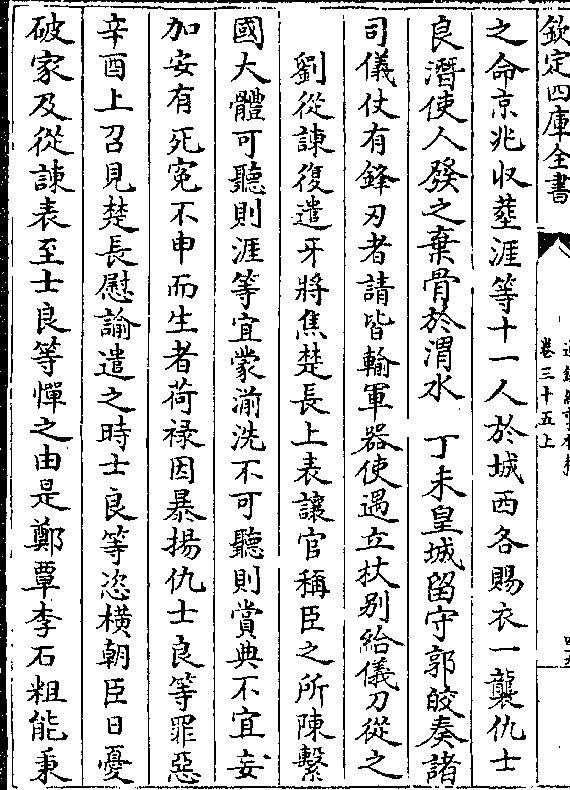 欽定四庫全書
卷三十五上
之命京兆収塟涯等十一人於城西各賜衣一襲仇士
良潛使人發之棄骨於渭水　丁未皇城留守郭皎奏諸
司儀仗有鋒刃者請皆輸軍器使遇立杖别給儀刀從之
劉從諫復遣牙將焦楚長上表讓官稱臣之所陳繫
國大體可聽則涯等宜蒙湔洗不可聽則賞典不宜妄
加安有死寃不申而生者荷禄因暴揚仇士良等罪惡
辛酉上召見楚長慰諭遣之時士良等恣横朝臣日憂
破家及從諫表至士良等憚之由是鄭覃李石粗能秉